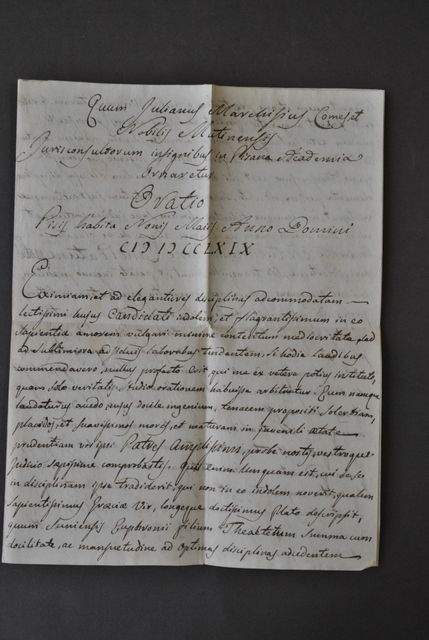 Quum Julianus Marchisius Comes et
Nobilis Mutinensis
Jurisconsultorum insignibus in Pisana Academia
Ornaretur
Oratio
Pisis habita Nonis Maiis Anno Domini
CIƆ IƆ CCLXIX
Eximiam, et ad elegantiores disciplinas adcommodatam
lectissimi hujus Candidati indolem, et flagrantissimum in eo
sapientiæ amorem vulgari minime contentum mediocritate, sed
ad sublimiora laboribus tendentem, si hodie laudibus
commendavero, nullus profecto erit, qui me ex vetere potius instituto,
quam solo veritatis studio orationem habuisse arbitretur. Cum namque
laudaturus audio, ejus docile ingenium, tenacem propositi solertiam,
placidos, et suavissimos mores, et maturam in juvenili ætate
prudentiam vos ipsi Patres Amplissimi, probe nostis, vestroque
judicio sæpissime comprobastis. Quis enim unquam est, cui se se
in disciplinam ipse tradiderit, qui non in eo indolem noverit, qualem
sapientissimus Græciæ Vir, longeque doctissimus Plato descripsit,
quum Suniensis Euphronii filium Theætetum summa cum
docilitate, ac mansuetudine ad optimas disciplinas accedentem